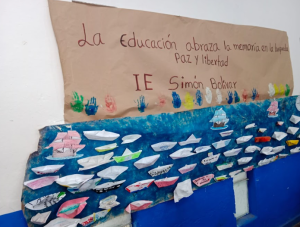 La Educación abraza la memoria en la
Paz y libertad
IE Simón Bolívar